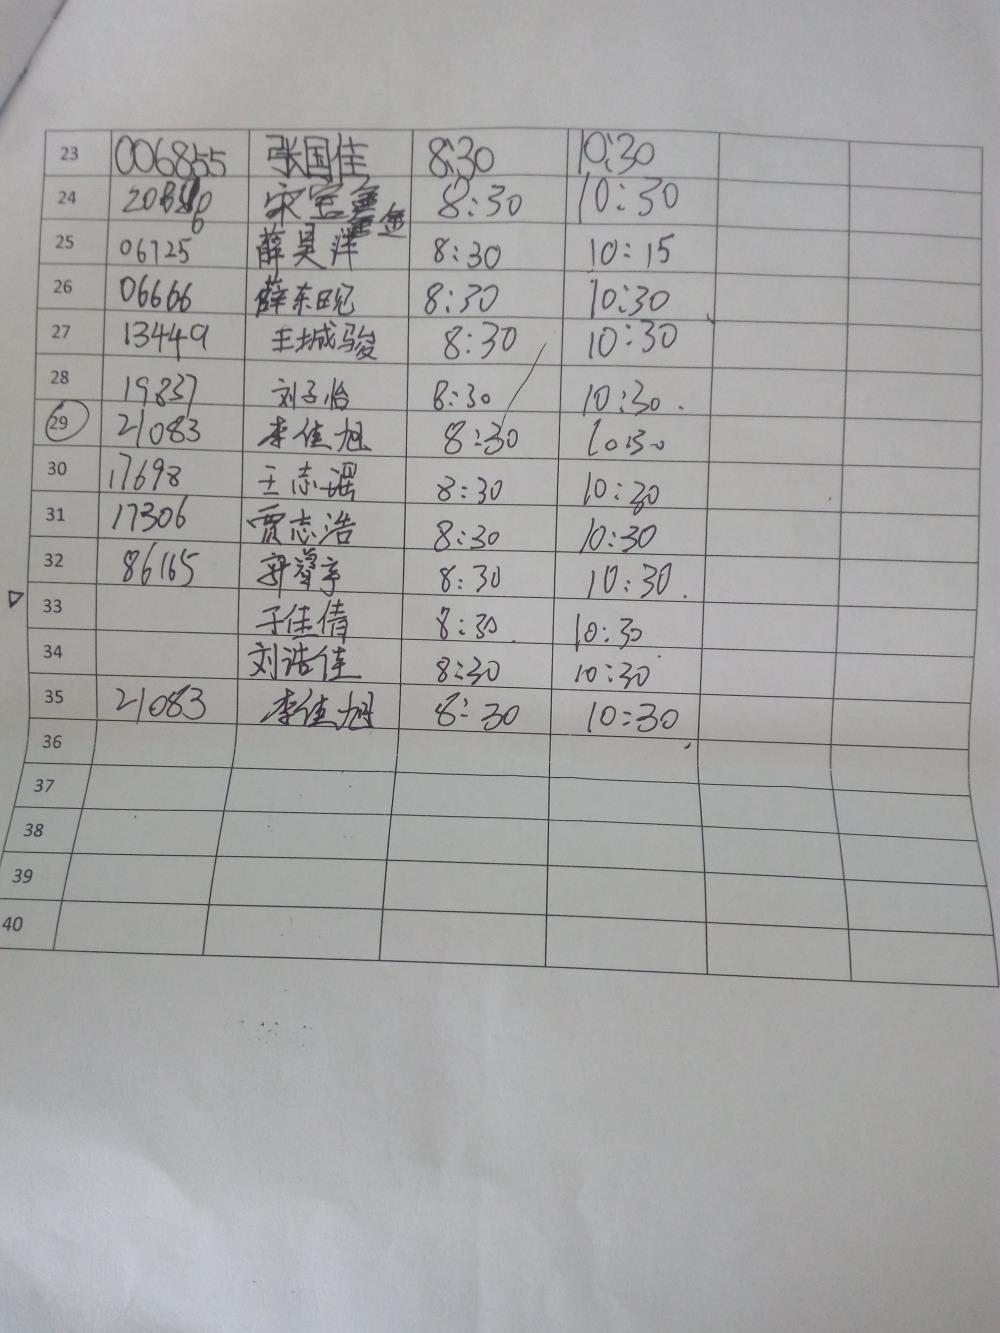 23 006855 张国佳 8:30 10:30
24 宋宝鑫 8:30 10:30
25 06725 薛昊洋 8:30 10:15
26 06666 薛东晓 8:30 10:30
27 13449 王城骏 8:30 10:30
28 19837 刘子怡 8:30 10:30.
29 21083 李佳旭 8:30 10:30
30 17698 王志 8:30 10:30
31 17306 贾志浩 8:30 10:30
32 86165 8:30 10:30.
33 于佳倩 8:30. 10:30
34 刘浩佳 8:30 10:30
35 21083 李佳旭 8:30 10:30
36
37
38
39
40